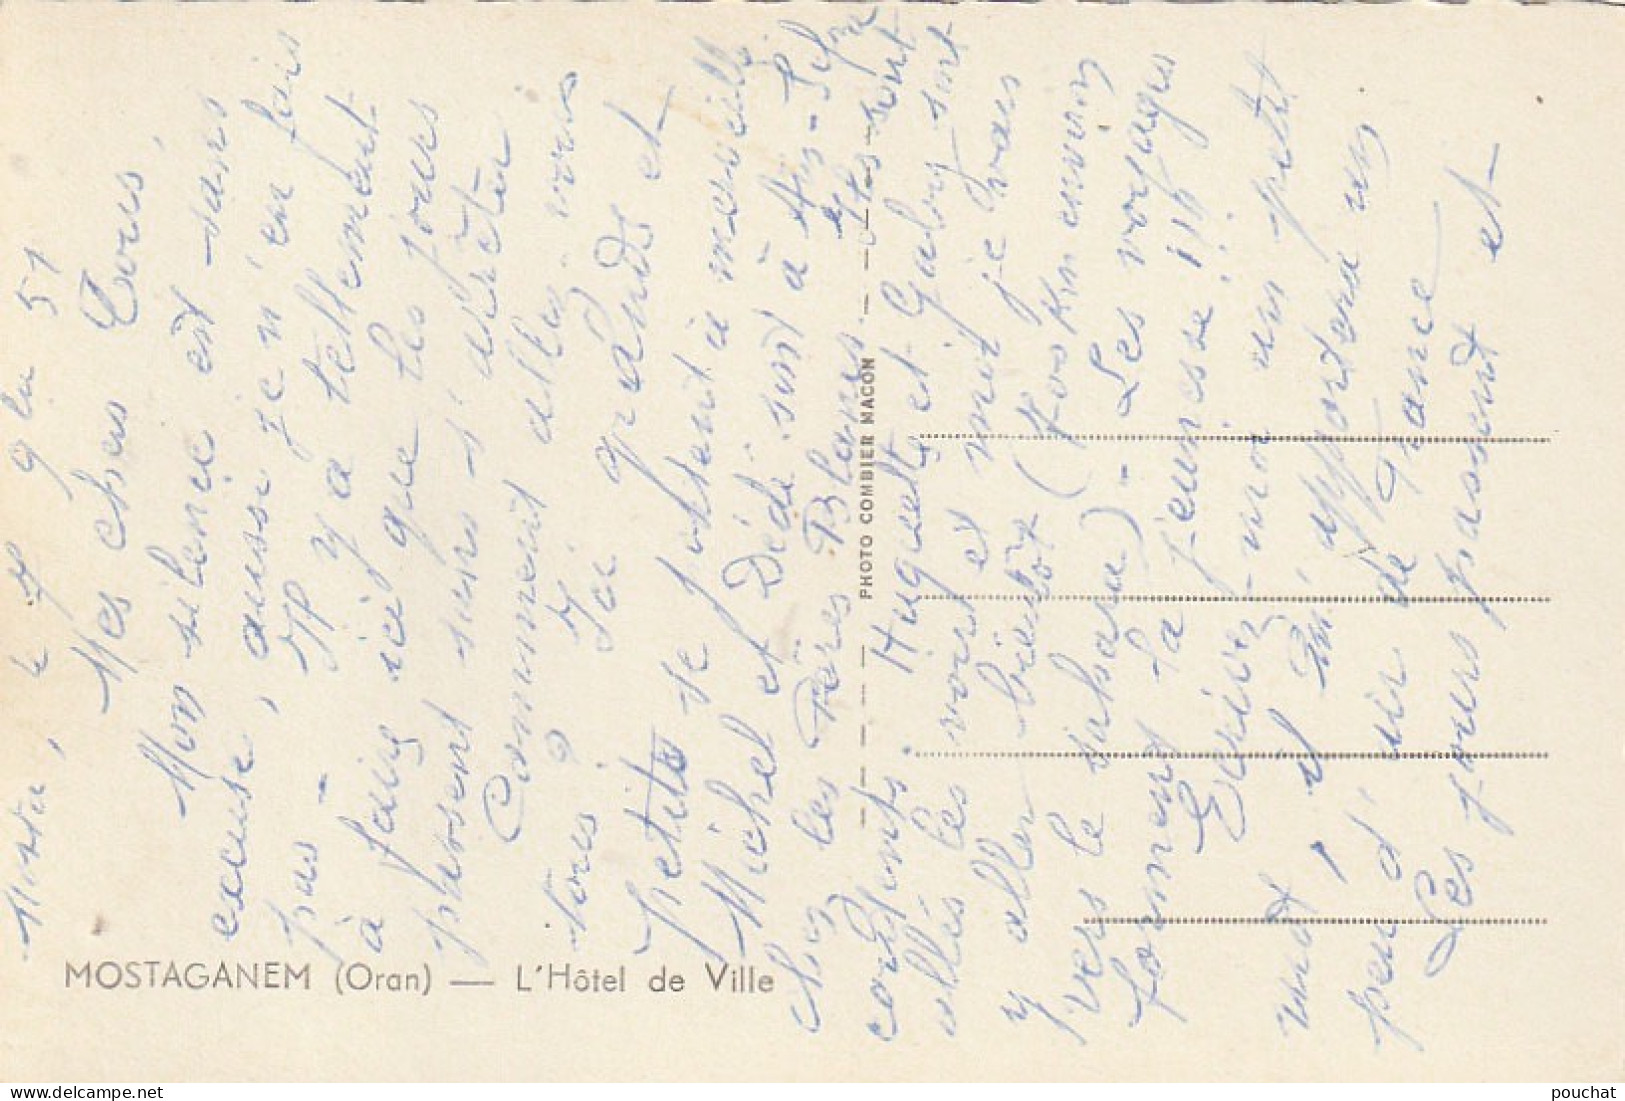 Mosta, le 7 9bre 51
Mes chers Tous,
Mon silence est sans
excuse, aussi je n'en fais
pas - Il y a tellement
à faire ici que les jours
passent sans s'arrêter
Comment allez vous
tous ? Ici grands et
petits se portent à merveille
Michel et Dédé sont à Aïn-Sefra
chez les Pères Blancs. Ils sont
contents. Huguette et Gaby sont
allés les voir et moi je vais
y aller bientôt (700 Km environ
vers le sahara) - Les voyages
forment la jeunesse !!!
Ecrivez-moi un petit
mot, il m'apportera un
peu d'air de France
Les jours passent et
MOSTAGANEM (Oran) — L'Hôtel de Ville
PHOTO COMBIER MACON
pouchat